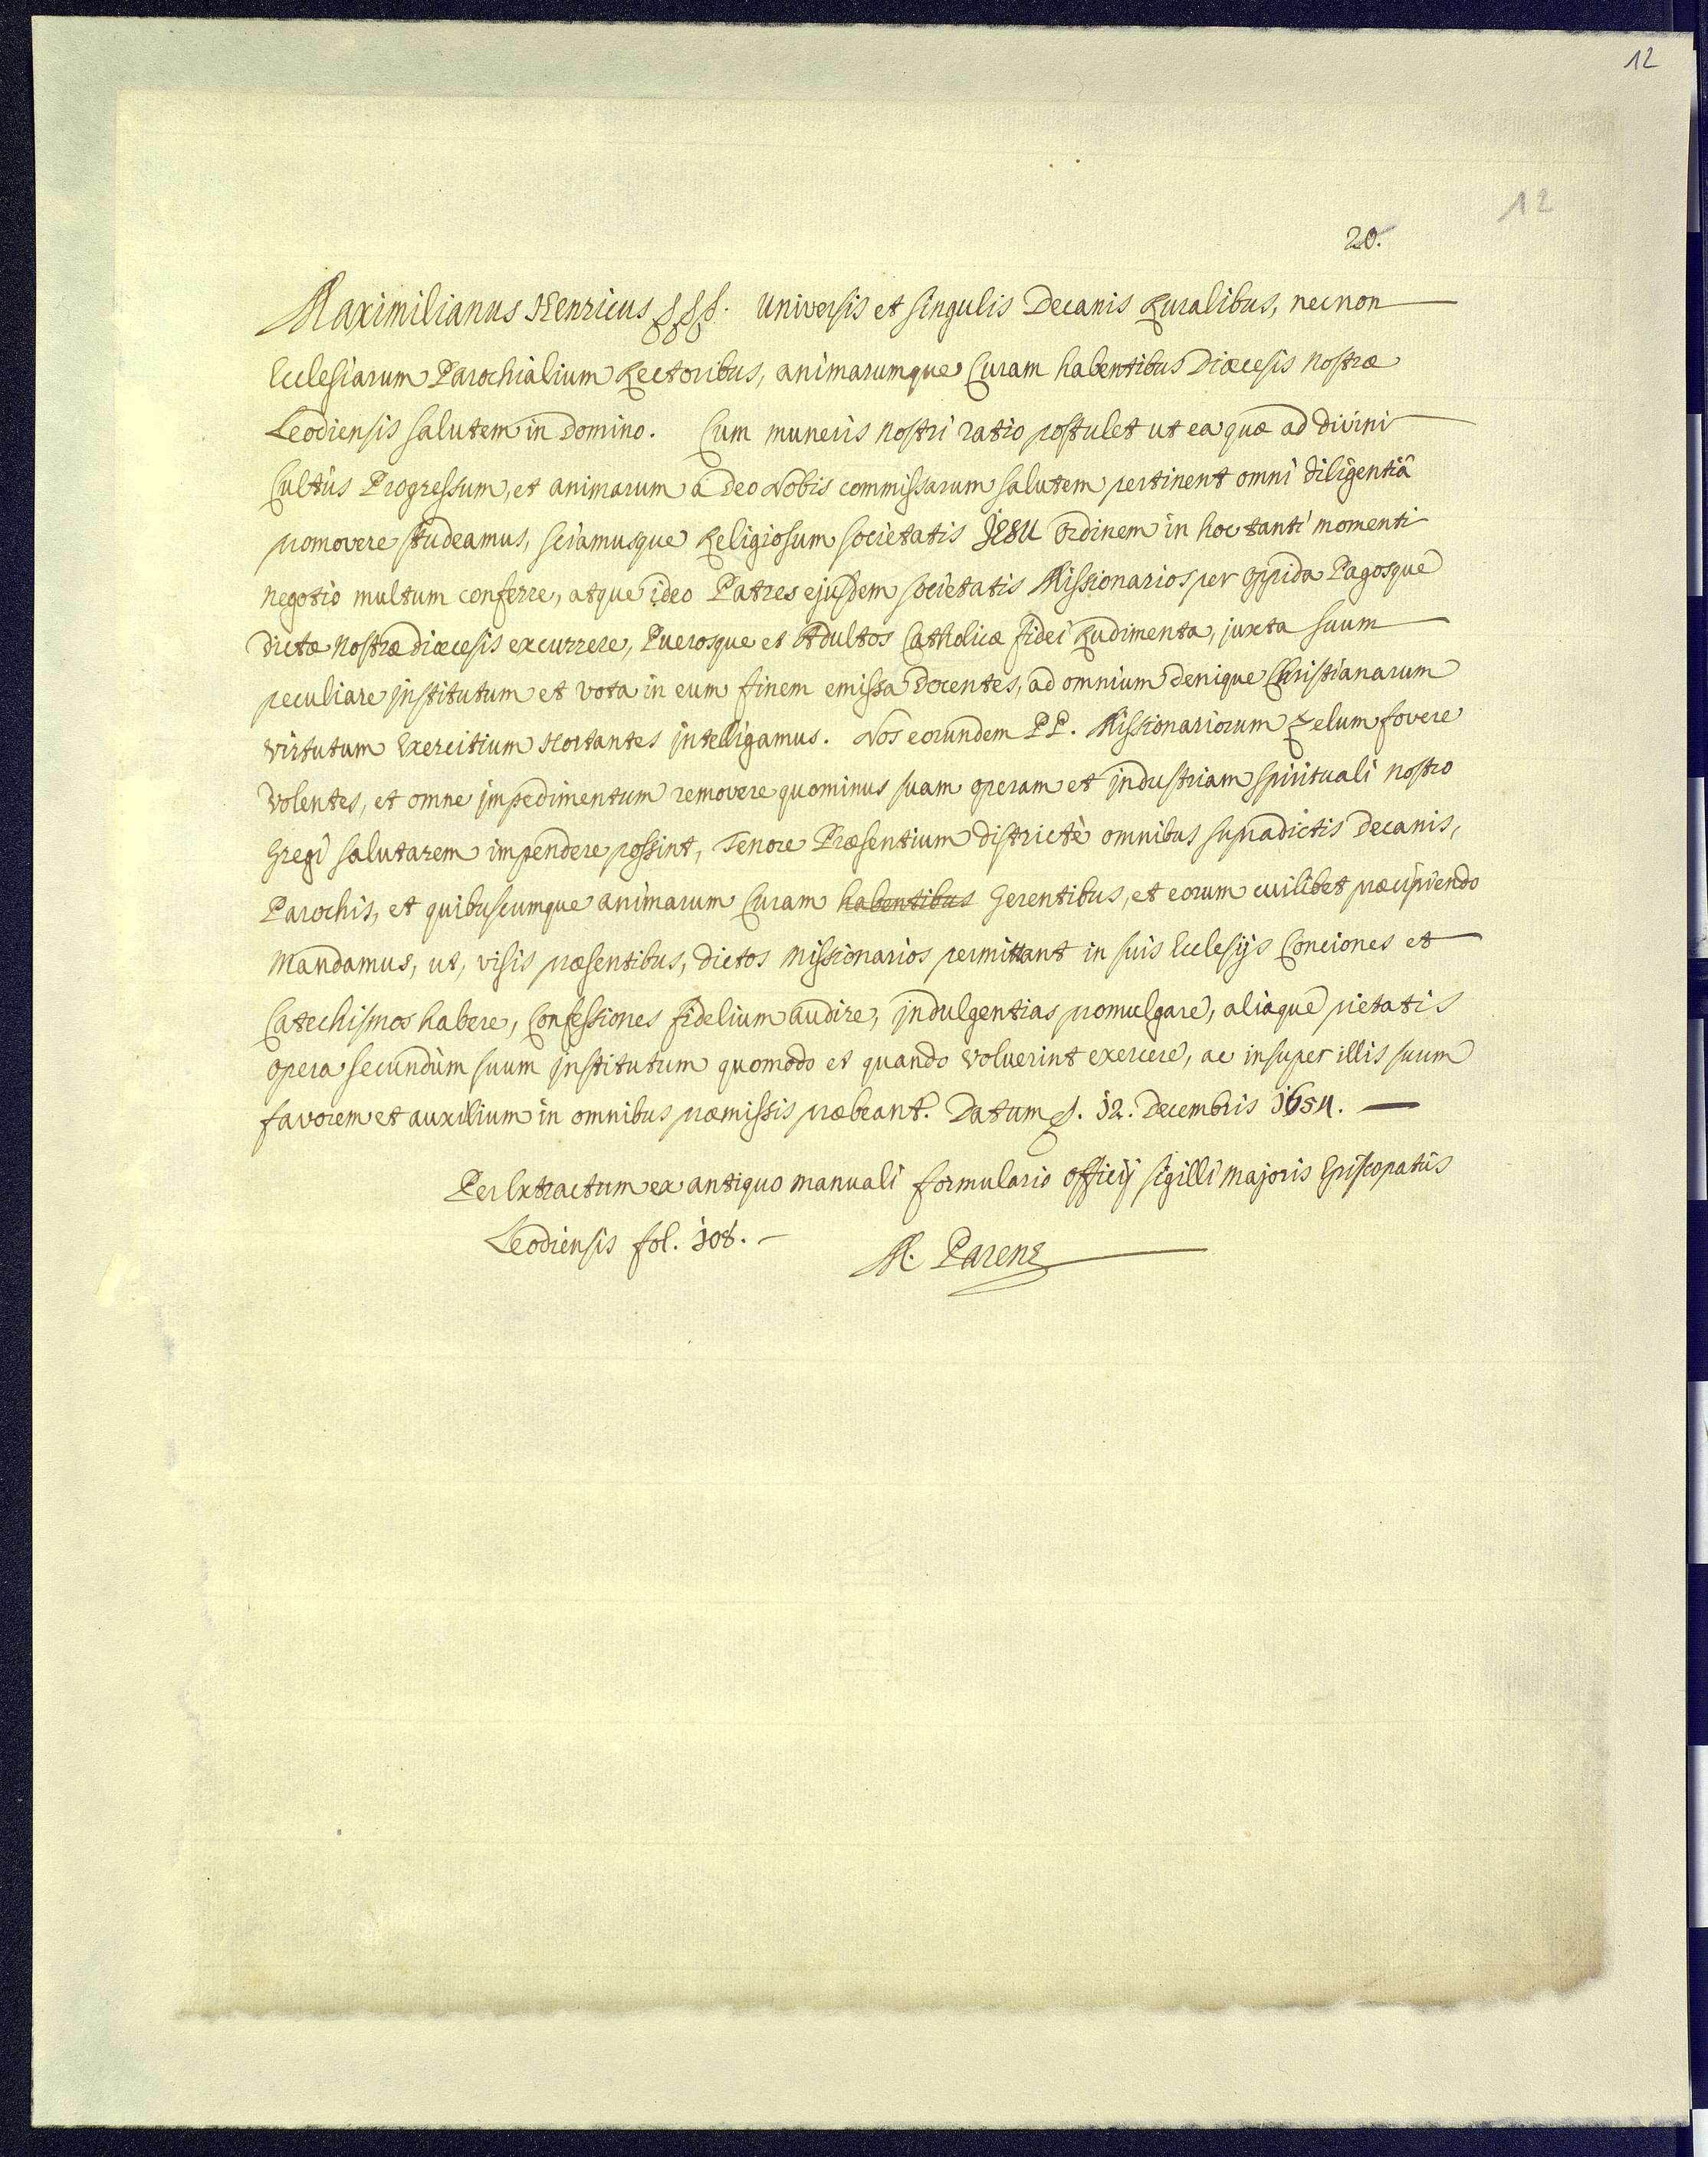 12
12
20.
Maximilianus Henricus &&&. Universis et singulis Decanis Ruralibus, necnon
Ecclesiarum Parochialium Rectoribus, animarumque Curam habentibus Diœcesis nostræ
Leodiensis salutem in Domino. Cum muneris nostri ratio postulet ut ea quæ ad divini
Cultûs Progressum, et animarum à Deo Nobis commissarum salutem pertinent omni diligentiâ
promovere studeamus, sciamusque Religiosum societatis Jesu Ordinem in hoc tanti momenti
negotio multum conferre, atque ideo Patres ejusdem societatis Missionarios per Oppida Pagosque
dictæ nostræ diœcesis excurrere, Puerosque et Adultos Catholicæ fidei Rudimenta, juxta suum
peculiare institutum et vota in eum finem emissa Docentes, ad omnium denique Christianarum
virtutum Exercitium Hortantes intelligamus. Nos eorundem PP. Missionariorum Zelum fovere
Volentes, et omne impedimentum removere quominus suam operam et industriam spirituali nostro
Gregi salutarem impendere possint, Tenore Præsentium districtè omnibus supradictis Decanis,
Parochis, et quibuscumque animarum Curam habentibus Gerentibus, et eorum cuilibet præcipiendo
Mandamus, ut, visis præsentibus, dictos Missionarios permittant in suis Ecclesijs Conciones et
Catechismos habere, Confessiones fidelium audire, indulgentias promulgare, aliaque pietatis
opera secundùm suum institutum quomodo et quando voluerint exercere, ac insuper illis suum
favorem et auxilium in omnibus præmissis præbeant. Datum &. 12. Decembris 1654.
Per Extractum ex antiquo manuali formulario officij sigilli majoris Episcopatûs
Leodiensis fol. 108.
M. Parens